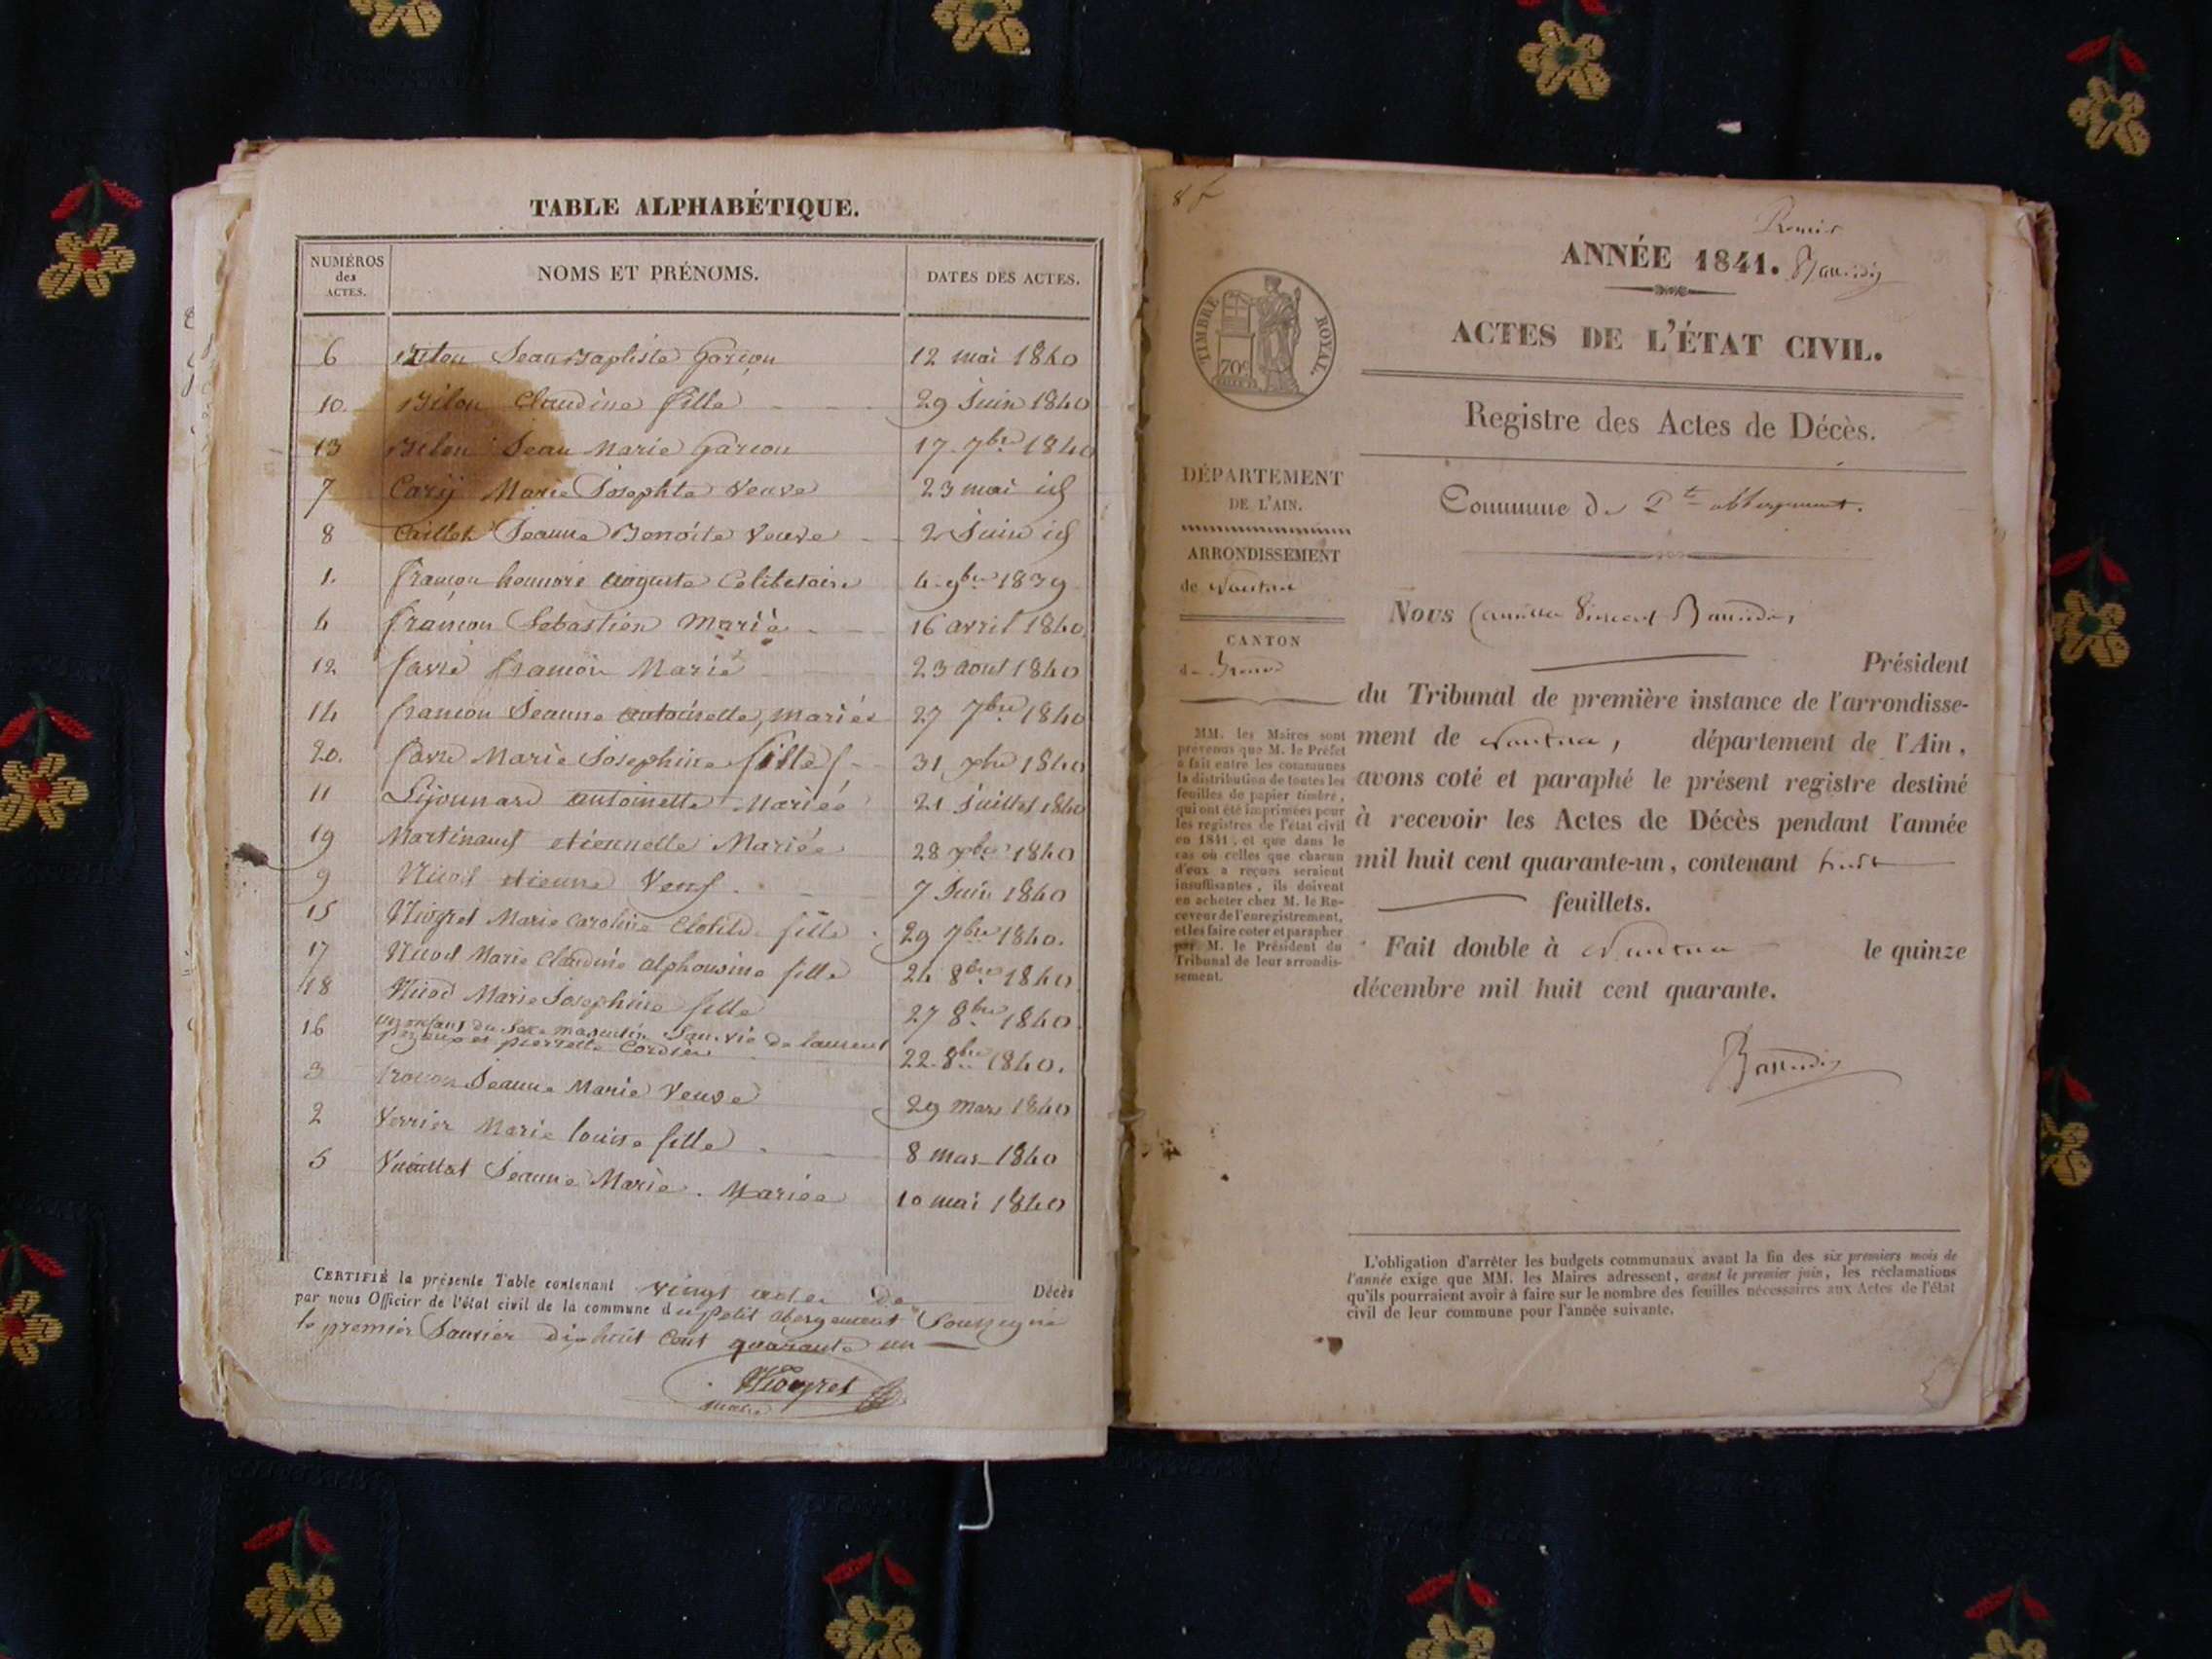 TABLE ALPHABÉTIQUE.
NUMÉROS
des
ACTES.
NOMS ET PRÉNOMS.
DATES DES ACTES.
6 Jean Baptiste Garçon 12 mai 1840
10. Bilon Claudine fille 29 Juin 1840
13 Bilon Jean Marie Garcon 17 7bre 1840
7 Cary Marie Josephte Veuve 23 mai id
8 Caillet Jeanne Benoite Veuve 2 Juin id
1. françon honnoré auguste Celibataire 4 9bre 1839
4 françon Sebastien Marié 16 avril 1840
12 favre françois Marié 23 aout 1840
14 françon Jeanne antoinette, mariée 27 7bre 1840
20. favre Marie Josephine fille 31 1840
11 Lijonnard antoinette Mariée 21 Juillet 1840
19 Martinand etiennette Mariée 28 1840
9 Nicod etienne Veuf. 7 Juin 1840
15 Niogret Marie Caroline Clotilde fille 29 7bre 1840.
17 Nicod Marie Claudine alphonsine fille 24 8bre 1840
18 Nicod Marie Josephine fille 27 8bre 1840
16 un enfant du Sexe masculin San vie de laurent
et pierrette Cordier 22 8bre 1840.
3 Jeanne Marie Veuve 29 Mars 1840
2 Verrier Marie louise fille 8 mars 1840
5 Vuaillat Jeanne Marie. Mariée 10 mai 1840
CERTIFIÉ la présente Table contenant vingt actes de Décès
par nous Officier de l'état civil de la commune du petit abergement Soussigné
le premier Janvier dix huit Cent quarante un
Niogret
maire
8 f
Premier
ANNÉE 1841. Baudin
TIMBRE ROYAL.
70c
ACTES DE L'ÉTAT CIVIL.
Registre des Actes de Décès.
DÉPARTEMENT
DE L'AIN.
ARRONDISSEMENT
de Nantua
CANTON
de
MM. les Maires sont
prévenus que M. le Préfet
a fait entre les communes
la distribution de toutes les
feuilles de papier timbré,
qui ont été imprimées pour
les registres de l'état civil
en 1841, et que dans le
cas où celles que chacun
d'eux a reçues seraient
insuffisantes, ils doivent
en acheter chez M. le Re-
ceveur de l'enregistrement,
et les faire coter et parapher
par M. le Président du
Tribunal de leur arrondis-
sement.
Commune de Pt abbergement.
Nous Camille Vincent
Président
du Tribunal de première instance de l'arrondisse-
ment de Nantua, département de l'Ain,
avons coté et paraphé le présent registre destiné
à recevoir les Actes de Décès pendant l'année
mil huit cent quarante-un, contenant
feuillets.
Fait double à Nantua le quinze
décembre mil huit cent quarante.
L'obligation d'arrêter les budgets communaux avant la fin des six premiers mois de
l'année exige que MM. les Maires adressent, avant le premier juin, les réclamations
qu'ils pourraient avoir à faire sur le nombre des feuilles nécessaires aux Actes de l'état
civil de leur commune pour l'année suivante.